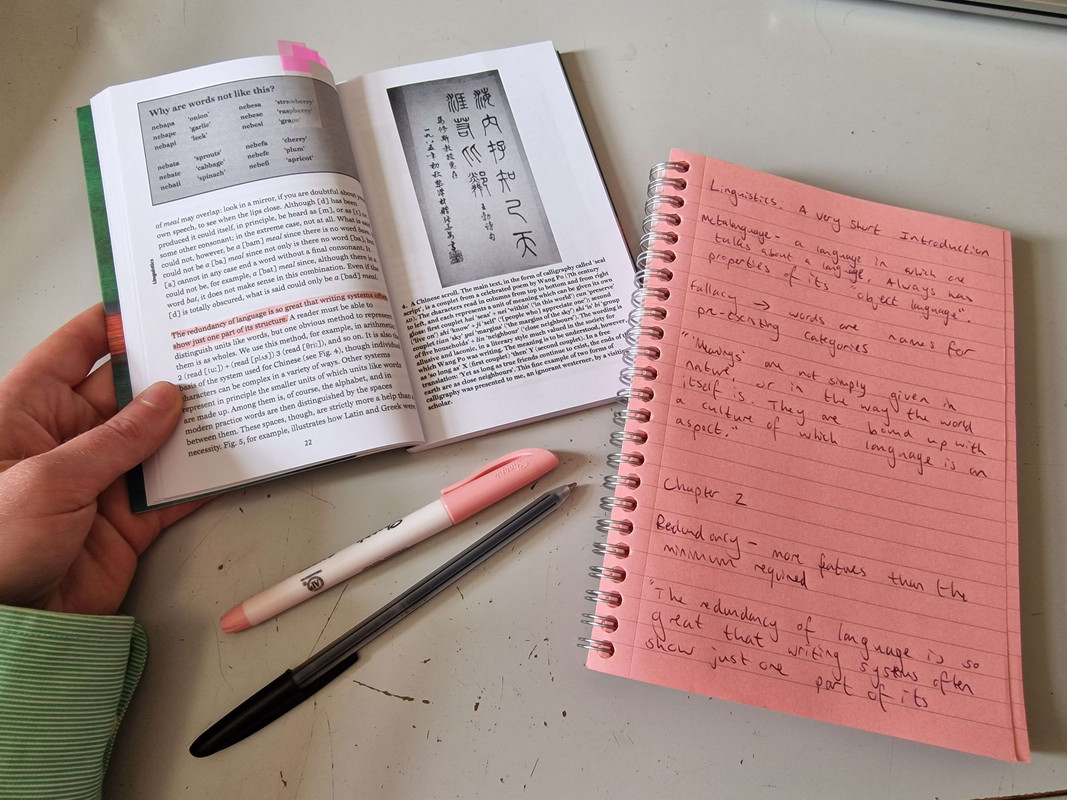 Why are words not like this?
nebapa 'onion' nebesa 'strawberry'
nebape 'garlic' nebese 'raspberry'
nebapi 'leek' nebesi 'grape'
nebata 'sprouts' nebefa 'cherry'
nebate 'cabbage' nebefe 'plum'
nebati 'spinach' nebefi 'apricot'
of meal may overlap: look in a mirror, if you are doubtful about your
own speech, to see when the lips close. Although [d] has been
produced it could itself, in principle, be heard as [m], or as [t]
some other consonant; in the extreme case, not at all. What is
could not, however, be a [bam] meal since there is no word bam
could not be a [ba] meal since not only is there no word [ba], but
[a] cannot in any case end a word without a final consonant. It
could not be, for example, a [bat] meal since, although there is a
word bat, it does not make sense in this combination. Even if the
[d] is totally obscured, what is said could only be a [bad] meal.
The redundancy of language is so great that writing systems often
show just one part of its structure. A reader must be able to
distinguish units like words, but one obvious method to represent
them is as wholes. We use this method, for example, in arithmetic:
2 (read [tuː]) + (read [plʌs]) 3 (read [θriː]), and so on. It is also the
basis of the system used for Chinese (see Fig. 4), though individual
characters can be complex in a variety of ways. Other systems
represent in principle the smaller units of which units like words
are made up. Among them is, of course, the alphabet, and in
modern practice words are then distinguished by the spaces
between them. These spaces, though, are strictly more a help than a
necessity. Fig. 5, for example, illustrates how Latin and Greek were
Linguistics
22
海内存知己天
涯若比鄰
王勃詩句
4. A Chinese scroll. The main text, in the form of calligraphy called 'seal
script', is a couplet from a celebrated poem by Wang Po (7th century
AD). The characters read in columns from top to bottom and from right
to left, and each represents a unit of meaning which can be given its own
gloss: first couplet hai 'seas' + nei 'within' ('in this world') cun 'preserve'
('live on') zhi 'know' + ji 'self' ('I people who appreciate one'); second
couplet tian 'sky' yai 'margins' ('the margins of the sky') ruo bi 'group
of five households' + lin 'neighbour' ('close neighbours'). The wording is
allusive and laconic, in a literary style much valued in the society for
which Wang Po was writing. The meaning is to be understood, however,
as 'so long as' X (first couplet) 'then' Y (second couplet). In a free
translation: 'Yet as long as true friends continue to exist, the ends of the
earth are as close neighbours'. This fine example of two forms of
calligraphy was presented to me, an ignorant westerner, by a visiting
scholar.
Linguistics: A very short Introduction
Metalanguage - a language in which one
talks about a language. Always has
properties of its "object language"
Fallacy → words are names for
pre-existing categories
"'Meanings' are not simply given in
nature, or in the way the world
itself is. They are bound up with
a culture of which language is an
aspect."
Chapter 2
Redundancy - more features than the
minimum required
"The redundancy of language is so
great that writing systems often
show just one part of its